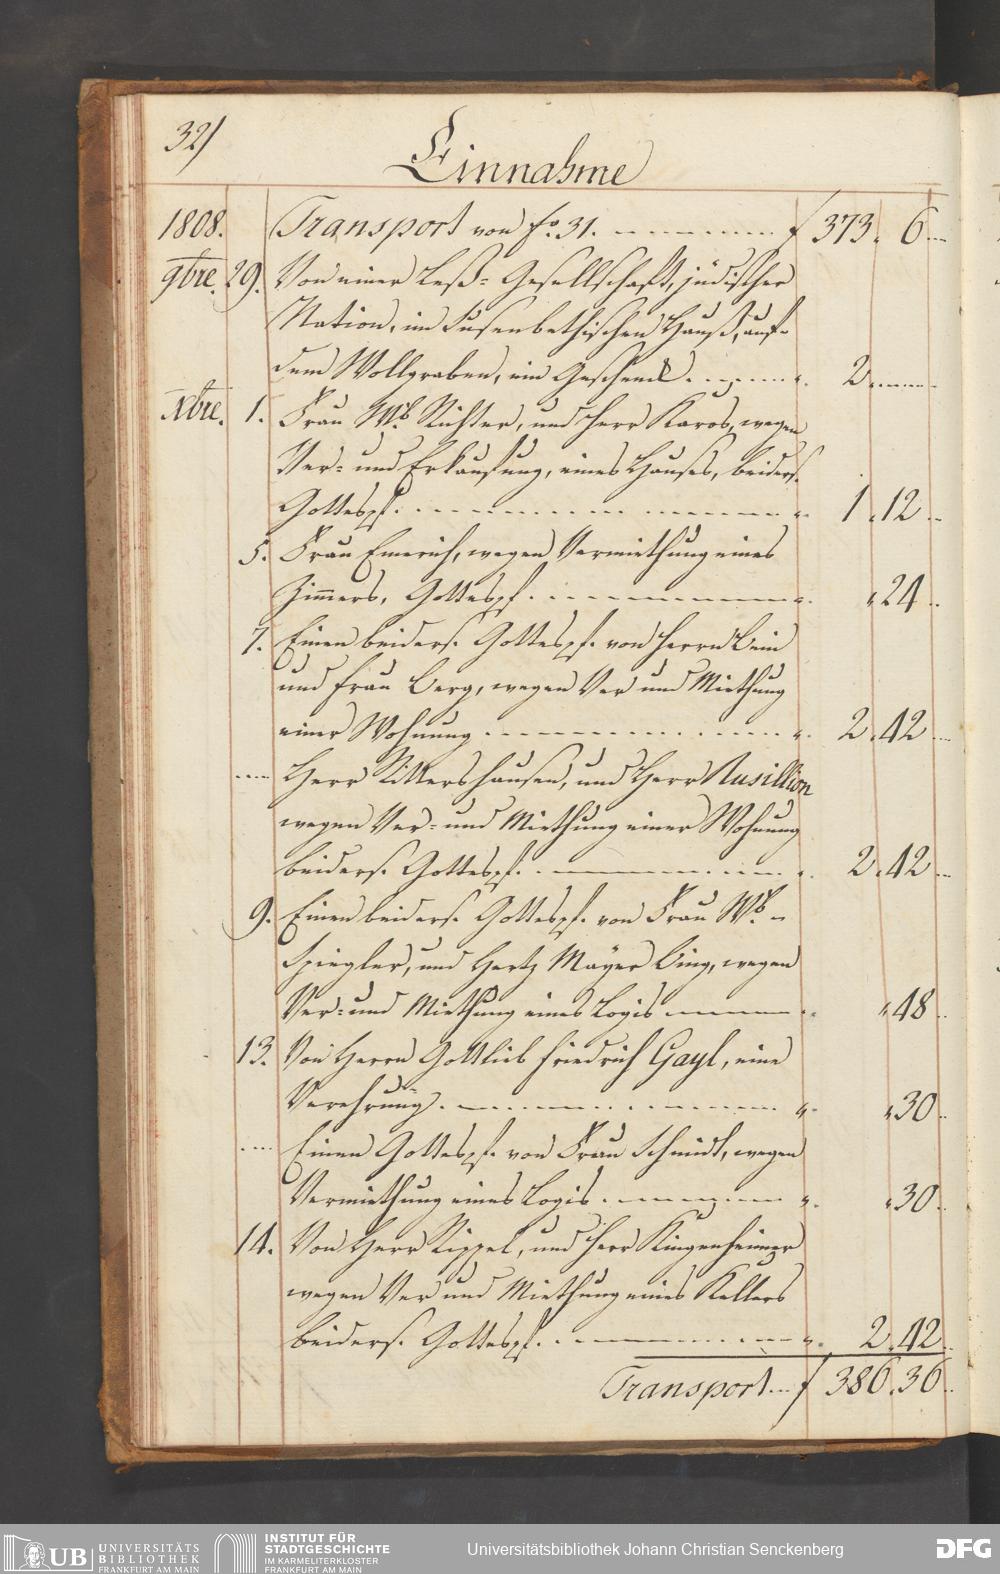 32)
Einnahme
1808. Transport von fo. 31. f 373. 6
9bre. 29. Von einer Leß-Gesellschaft, jüdischer
Nation, im Fusenbethischen Hauß, auf
dem Wollgraben, ein Geschenk. 2.
Xbre. 1. Frau Wb. Richter, und Herr Karos, wegen
Ver- und Erkaufung, eines Haußes, beiders.
Gottespf. 1.12
5. Frau Emerich, wegen Vermiethung eines
Zimmers, Gottespf. 24
7. Einen beiders. Gottespf. von Herrn Bein
und Frau Berg, wegen Ver und Miethung
einer Wohnung 2.42
Herr Rittershausen, und Herr Nusillion
wegen Ver- und Miethung einer Wohnung
beiders. Gottespf. 2.42
9. Einen beiders. Gottespf. von Frau Wb.
Spiegler, und Hertz Mayer Bing, wegen
Ver- und Miethung eines Logis 48
13. Von Herrn Gottlieb Friedrich Gayl, eine
Verehrung. 30
Einen Gottespf. von Frau Schmidt, wegen
Vermiethung eines Logis. 30
14. Von Herr Rippel, und Herr Kingenheimer
wegen Ver und Miethung eines Kellers
beiders. Gottespf. 2.42
Transport f 386.36
UB UNIVERSITÄTS
BIBLIOTHEK
FRANKFURT AM MAIN
INSTITUT FÜR
STADTGESCHICHTE
IM KARMELITERKLOSTER
FRANKFURT AM MAIN
Universitätsbibliothek Johann Christian Senckenberg
DFG